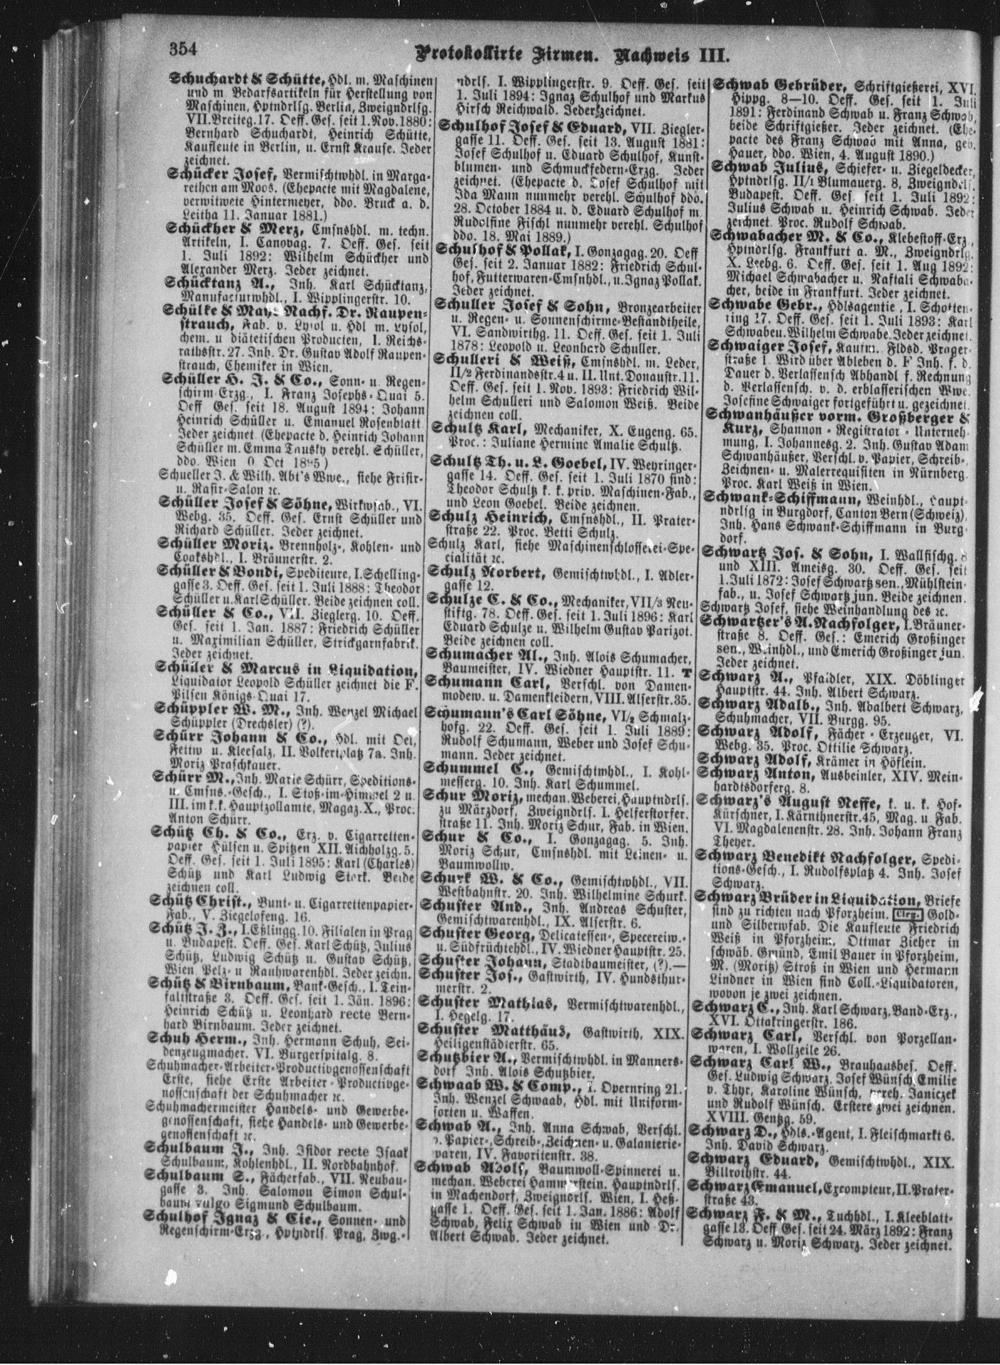 354
Protokollirte Firmen. Nachweis III.
Schuchardt & Schütte, Hdl. m. Maschinen
und m. Bedarfsartikeln für Herstellung von
Maschinen, Hptndrlsg. Berlin, Zweigndrlsg.
VII. Breiteg. 17. Oeff. Ges. seit 1. Nov. 1880:
Bernhard Schuchardt, Heinrich Schütte,
Kaufleute in Berlin, u. Ernst Krause. Jeder
zeichnet.
Schücker Josef, Vermischtwhdl. in Marga-
rethen am Moos. (Ehepacte mit Magdalene,
verwitwete Hintermeyer, ddo. Bruck a. d.
Leitha 11. Januar 1881.)
Schückher & Merz, Cmfnshdl. m. techn.
Artikeln, I. Canovag. 7. Oeff. Ges. seit
1. Juli 1892: Wilhelm Schückher und
Alexander Merz. Jeder zeichnet.
Schücktanz A., Inh. Karl Schücktanz,
Manufacturwhdl., I. Wipplingerstr. 10.
Schülke & Mayr Nachf. Dr. Raupen-
strauch, Fab. v. Lysol u. Hdl m. Lysol,
chem. u diätetischen Producten, I. Reichs-
rathsstr. 27. Inh. Dr. Gustav Adolf Raupen-
strauch, Chemiker in Wien.
Schüller H. J. & Co., Sonn- u. Regen-
schirm-Erzg., I. Franz Josephs-Quai 5.
Oeff Ges. seit 18. August 1894: Johann
Heinrich Schüller u. Emanuel Rosenblatt
Jeder zeichnet (Ehepacte d. Heinrich Johann
Schüller m. Emma Tausky verehl. Schüller,
ddo. Wien Oct 1895)
Schueller J. & Wilh. Abt's Wwe., siehe Frisir-
u. Rasir-Salon ec.
Schüller Josef & Söhne, Wirkwfab., VI.
Webg. 35. Oeff. Ges. Ernst Schüller und
Richard Schüller. Jeder zeichnet.
Schüller Moriz. Brennholz-, Kohlen- und
Cookshdl., I. Bräunerstr. 2.
Schüller & Bondi, Spediteure, I. Schelling-
gasse 3. Oeff. Ges. seit 1. Juli 1888: Theodor
Schüller u. Karl Schüller. Beide zeichnen coll.
Schüller & Co., VII. Zieglerg. 10. Oeff.
Ges. seit 1. Jan. 1887: Friedrich Schüller
u. Maximilian Schüller, Strickgarnfabrik.
Jeder zeichnet.
Schüller & Marcus in Liquidation,
Liquidator Leopold Schüller zeichnet die F.
Pilsen Königs-Quai 17.
Schüppler W. M., Inh. Wenzel Michael
Schüppler (Drechsler) (?).
Schürr Johann & Co., Hdl. mit Oel,
Fettw u. Kleesalz, II. Volkertplatz 7a. Inh.
Moriz Praschkauer.
Schürr M., Inh. Marie Schürr, Speditions-
u. Cmfns.-Gesch., I. Stoß-im-Himmel 2 u.
III. im k.k. Hauptzollamte, Magaz. X., Proc.
Anton Schürr.
Schütz Ch. & Co., Erz. v. Cigaretten-
papier Hülsen u. Spitzen XII. Aichholzg. 5.
Oeff. Ges. seit 1. Juli 1895: Karl (Charles)
Schütz und Karl Ludwig Stork. Beide
zeichnen coll.
Schütz Christ., Bunt- u. Cigarettenpapier-
Fab., V. Ziegelofeng. 16.
Schütz J. J., I. Eßlingg. 10. Filialen in Prag
u. Budapest. Oeff. Ges. Karl Schütz, Julius
Schütz, Ludwig Schütz u. Gustav Schütz,
Wien Pelz- u Rauhwarenhdl. Jeder zeichn.
Schütz & Birnbaum, Bank-Gesch., I. Tein-
faltstraße 3. Oeff. Ges. seit 1. Jän. 1896:
Heinrich Schütz u. Leonhard recte Bern-
hard Birnbaum. Jeder zeichnet.
Schuh Herm., Inh. Hermann Schuh, Sei-
denzeugmacher. VI. Burgerspitalg. 8.
Schuhmacher-Arbeiter-Productivgenossenschaft
Erste, siehe Erste Arbeiter-Productivge-
nossenschaft der Schuhmacher ec.
Schuhmachermeister Handels- und Gewerbe-
genossenschaft, siehe Handels- und Gewerbe-
genossenschaft ec.
Schulbaum J., Inh. Isidor recte Isaak
Schulbaum, Kohlenhdl., II. Nordbahnhof.
Schulbaum S., Fächerfab., VII. Neubau-
gasse 3. Inh. Salomon Simon Schul-
baum vulgo Sigmund Schulbaum.
Schulhof Ignaz & Cie., Sonnen- und
Regenschirm-Erzg., Hptndrls. Prag, Zwg.-
ndrls. I. Wipplingerstr. 9. Oeff. Ges. seit
1. Juli 1894: Ignaz Schulhof und Markus
Hirsch Reichwald. Jeder zeichnet.
Schulhof Josef & Eduard, VII. Ziegler-
gasse 11. Oeff. Ges. seit 13. August 1881:
Josef Schulhof u. Eduard Schulhof, Kunst-
blumen- und Schmuckfedern-Erzg. Jeder
zeichnet. (Ehepacte d. Josef Schulhof mit
Ida Mann nunmehr verehl. Schulhof ddo.
28. October 1884 u. d. Eduard Schulhof m.
Rudolfine Fischl nunmehr verehl. Schulhof
ddo. 18. Mai 1889.)
Schulhof & Pollak, I. Gonzagag. 20. Oeff
Ges. seit 2. Januar 1882: Friedrich Schul-
hof, Futterwaren-Cmfnhdl., u. Ignaz Pollak.
Jeder zeichnet.
Schuller Josef & Sohn, Bronzearbeiter
u. Regen- u. Sonnenschirme-Bestandtheile,
VI. Sandwirthg. 11. Oeff. Ges. seit 1. Juli
1878: Leopold u. Leonhard Schuller.
Schulleri & Weiß, Cmfnshdl. m. Leder,
II/2 Ferdinandsstr. 4 u. II. Unt. Donaustr. 11.
Oeff. Ges. seit 1. Nov. 1893: Friedrich Wil-
helm Schulleri und Salomon Weiß. Beide
zeichnen coll.
Schultz Karl, Mechaniker, X. Eugeng. 65.
Proc.: Juliane Hermine Amalie Schultz.
Schultz Th. u. L. Goebel, IV. Weyringer-
gasse 14. Oeff. Ges. seit 1. Juli 1870 sind:
Theodor Schultz k. k. priv. Maschinen-Fab.,
und Leon Goebel. Beide zeichnen.
Schulz Heinrich, Cmfnshdl., II. Prater-
straße 22. Proc. Betti Schulz.
Schulz Karl, siehe Maschinenschlosserei-Spe-
cialität ec.
Schulz Norbert, Gemischtwhdl., I. Adler-
gasse 12.
Schulze C. & Co., Mechaniker, VII/3 Neu-
stiftg. 78. Oeff. Ges. seit 1. Juli 1896: Karl
Eduard Schulze u. Wilhelm Gustav Parizot.
Beide zeichnen coll.
Schumacher Al., Inh. Alois Schumacher,
Baumeister, IV. Wiedner Hauptstr. 11. T
Schumann Carl, Verschl. von Damen-
modew. u. Damenkleidern, VIII. Alserstr. 35.
Schumann's Carl Söhne, VI/2 Schmalz-
hofg. 22. Oeff. Ges. seit 1. Juli 1889:
Rudolf Schumann, Weber und Josef Schu-
mann. Jeder zeichnet.
Schummel C., Gemischtwhdl., I. Kohl-
messerg. 10. Inh. Karl Schummel.
Schur Moriz, mechan. Weberei, Hauptndrls.
zu Märzdorf, Zweigndrls. I. Helferstorfer-
straße 11. Inh. Moriz Schur, Fab. in Wien.
Schur & Co., I. Gonzagag. 5. Inh.
Moriz Schur, Cmfnshdl. mit Leinen- u.
Baumwollw.
Schurk W. & Co., Gemischtwhdl., VII.
Westbahnstr. 20. Inh. Wilhelmine Schurk.
Schuster And., Inh. Andreas Schuster,
Gemischtwarenhdl., IX. Alserstr. 6.
Schuster Georg, Delicatessen-, Specereiw.-
u. Südfrüchtehdl., IV. Wiedner Hauptstr. 25.
Schuster Johann, Stadtbaumeister, (?).—
Schuster Jos., Gastwirth, IV. Hundsthur-
merstr. 2.
Schuster Mathias, Vermischtwarenhdl.,
I. Hegelg. 17.
Schuster Matthäus, Gastwirth, XIX.
Heiligenstädterstr. 65.
Schutzbier A., Vermischtwhdl. in Manners-
dorf Inh. Alois Schutzbier.
Schwaab W. & Comp., I. Opernring 21.
Inh. Wenzel Schwaab, Hdl. mit Uniform-
sorten u. Waffen.
Schwab A., Inh. Anna Schwab, Verschl.
v. Papier-, Schreib-, Zeichnen- u. Galanterie-
waren, IV. Favoritenstr. 38.
Schwab Adolf, Baumwoll-Spinnerei u.
mechan. Weberei Hammerstein, Hauptndrls.
in Machendorf, Zweigndrls. Wien, I. Heß-
gasse 1. Oeff. Ges. seit 1. Jan. 1886: Adolf
Schwab, Felix Schwab in Wien und Dr.
Albert Schwab. Jeder zeichnet.
Schwab Gebrüder, Schriftgießerei, XVI.
Hippg. 8—10. Oeff. Ges. seit 1. Juli
1891: Ferdinand Schwab u. Franz Schwab,
beide Schriftgießer. Jeder zeichnet. (Ehe-
pacte des Franz Schwab mit Anna, geb.
Hauer, ddo. Wien, 4. August 1890.)
Schwab Julius, Schiefer- u. Ziegeldecker,
Hptndrlsg. II/1 Blumauerg. 8, Zweigndrls.
Budapest. Oeff. Ges. seit 1. Juli 1892:
Julius Schwab u. Heinrich Schwab. Jeder
zeichnet. Proc. Rudolf Schwab.
Schwabacher M. & Co., Klebestoff-Erz.,
Hptndrlsg. Frankfurt a. M., Zweigndrlsg.
X. Leebg. 6. Oeff. Ges. seit 1. Aug 1892:
Michael Schwabacher u. Naftali Schwaba-
cher, beide in Frankfurt. Jeder zeichnet.
Schwabe Gebr., Hdlsagentie, I. Schotten-
ring 17. Oeff. Ges. seit 1. Juli 1893: Karl
Schwabe u. Wilhelm Schwabe. Jeder zeichnet.
Schwaiger Josef, Kautm. Fldsd. Prager-
straße 1. Wird über Ableben d. F Inh. f. d.
Dauer d. Verlassensch Abhandl f. Rechnung
d. Verlassensch. v. d. erblasserischen Wwe.
Josefine Schwaiger fortgeführt u. gezeichnet.
Schwanhäußer vorm. Großberger &
Kurz, Shannon-Registrator-Unterneh-
mung, I. Johannesg. 2. Inh. Gustav Adam
Schwanhäußer, Verschl. v. Papier, Schreib-,
Zeichnen- u. Malerrequisiten in Nürnberg.
Proc. Karl Weiß in Wien.
Schwank-Schiffmann, Weinhdl., Haupt-
ndrlsg in Burgdorf, Canton Bern (Schweiz).
Inh. Hans Schwank-Schiffmann in Burg-
dorf.
Schwartz Jos. & Sohn, I. Wallfischg. 8
und XIII. Ameisg. 30. Oeff. Ges. seit
1. Juli 1872: Josef Schwartz sen., Mühlstein-
fab., u. Josef Schwartz jun. Beide zeichnen.
Schwartz Josef, siehe Weinhandlung des ec.
Schwartzer's A. Nachfolger, I. Bräuner-
straße 8. Oeff. Ges.: Emerich Großinger
sen., Weinhdl., und Emerich Großinger jun.
Jeder zeichnet.
Schwarz A., Pfaidler, XIX. Döblinger
Hauptstr. 44. Inh. Albert Schwarz.
Schwarz Adalb., Inh. Adalbert Schwarz,
Schuhmacher, VII. Burgg. 95.
Schwarz Adolf, Fächer-Erzeuger, VI.
Webg. 35. Proc. Ottilie Schwarz.
Schwarz Adolf, Krämer in Höflein.
Schwarz Anton, Ausbeinler, XIV. Mein-
hardtsdorferg. 8.
Schwarz's August Neffe, k. u. k. Hof-
Kürschner, I. Kärnthnerstr. 45, Mag. u. Fab.
VI. Magdalenenstr. 28. Inh. Johann Franz
Theyer.
Schwarz Benedikt Nachfolger, Spedi-
tions-Gesch., I. Rudolfsplatz 4. Inh. Josef
Schwarz.
Schwarz Brüder in Liquidation, Briefe
sind zu richten nach Pforzheim. Clrg. Gold-
und Silberwfab. Die Kaufleute Friedrich
Weiß in Pforzheim, Ottmar Zieher in
schwäb. Gmünd, Emil Bauer in Pforzheim,
M. (Moritz) Stroß in Wien und Hermann
Lindner in Wien sind Coll.-Liquidatoren,
wovon je zwei zeichnen.
Schwarz C., Inh. Karl Schwarz, Band-Erz.,
XVI. Ottakringerstr. 186.
Schwarz Carl, Verschl. von Porzellan-
waren, I. Wollzeile 26.
Schwarz Carl W., Brauhausbes. Oeff.
Ges. Ludwig Schwarz. Josef Wünsch, Emilie
v. Thyr, Karoline Wünsch, vereh. Janiczek
und Rudolf Wünsch. Erstere zwei zeichnen.
XVIII. Gentzg. 59.
Schwarz D., Hdls.-Agent, I. Fleischmarkt 6.
Inh. David Schwarz.
Schwarz Eduard, Gemischtwhdl., XIX.
Billrothstr. 44.
Schwarz Emanuel, Excompteur, II. Prater-
straße 43.
Schwarz F. & M., Tuchhdl., I. Kleeblatt-
gasse 13. Oeff Ges. seit 24. März 1892: Franz
Schwarz u. Moriz Schwarz. Jeder zeichnet.